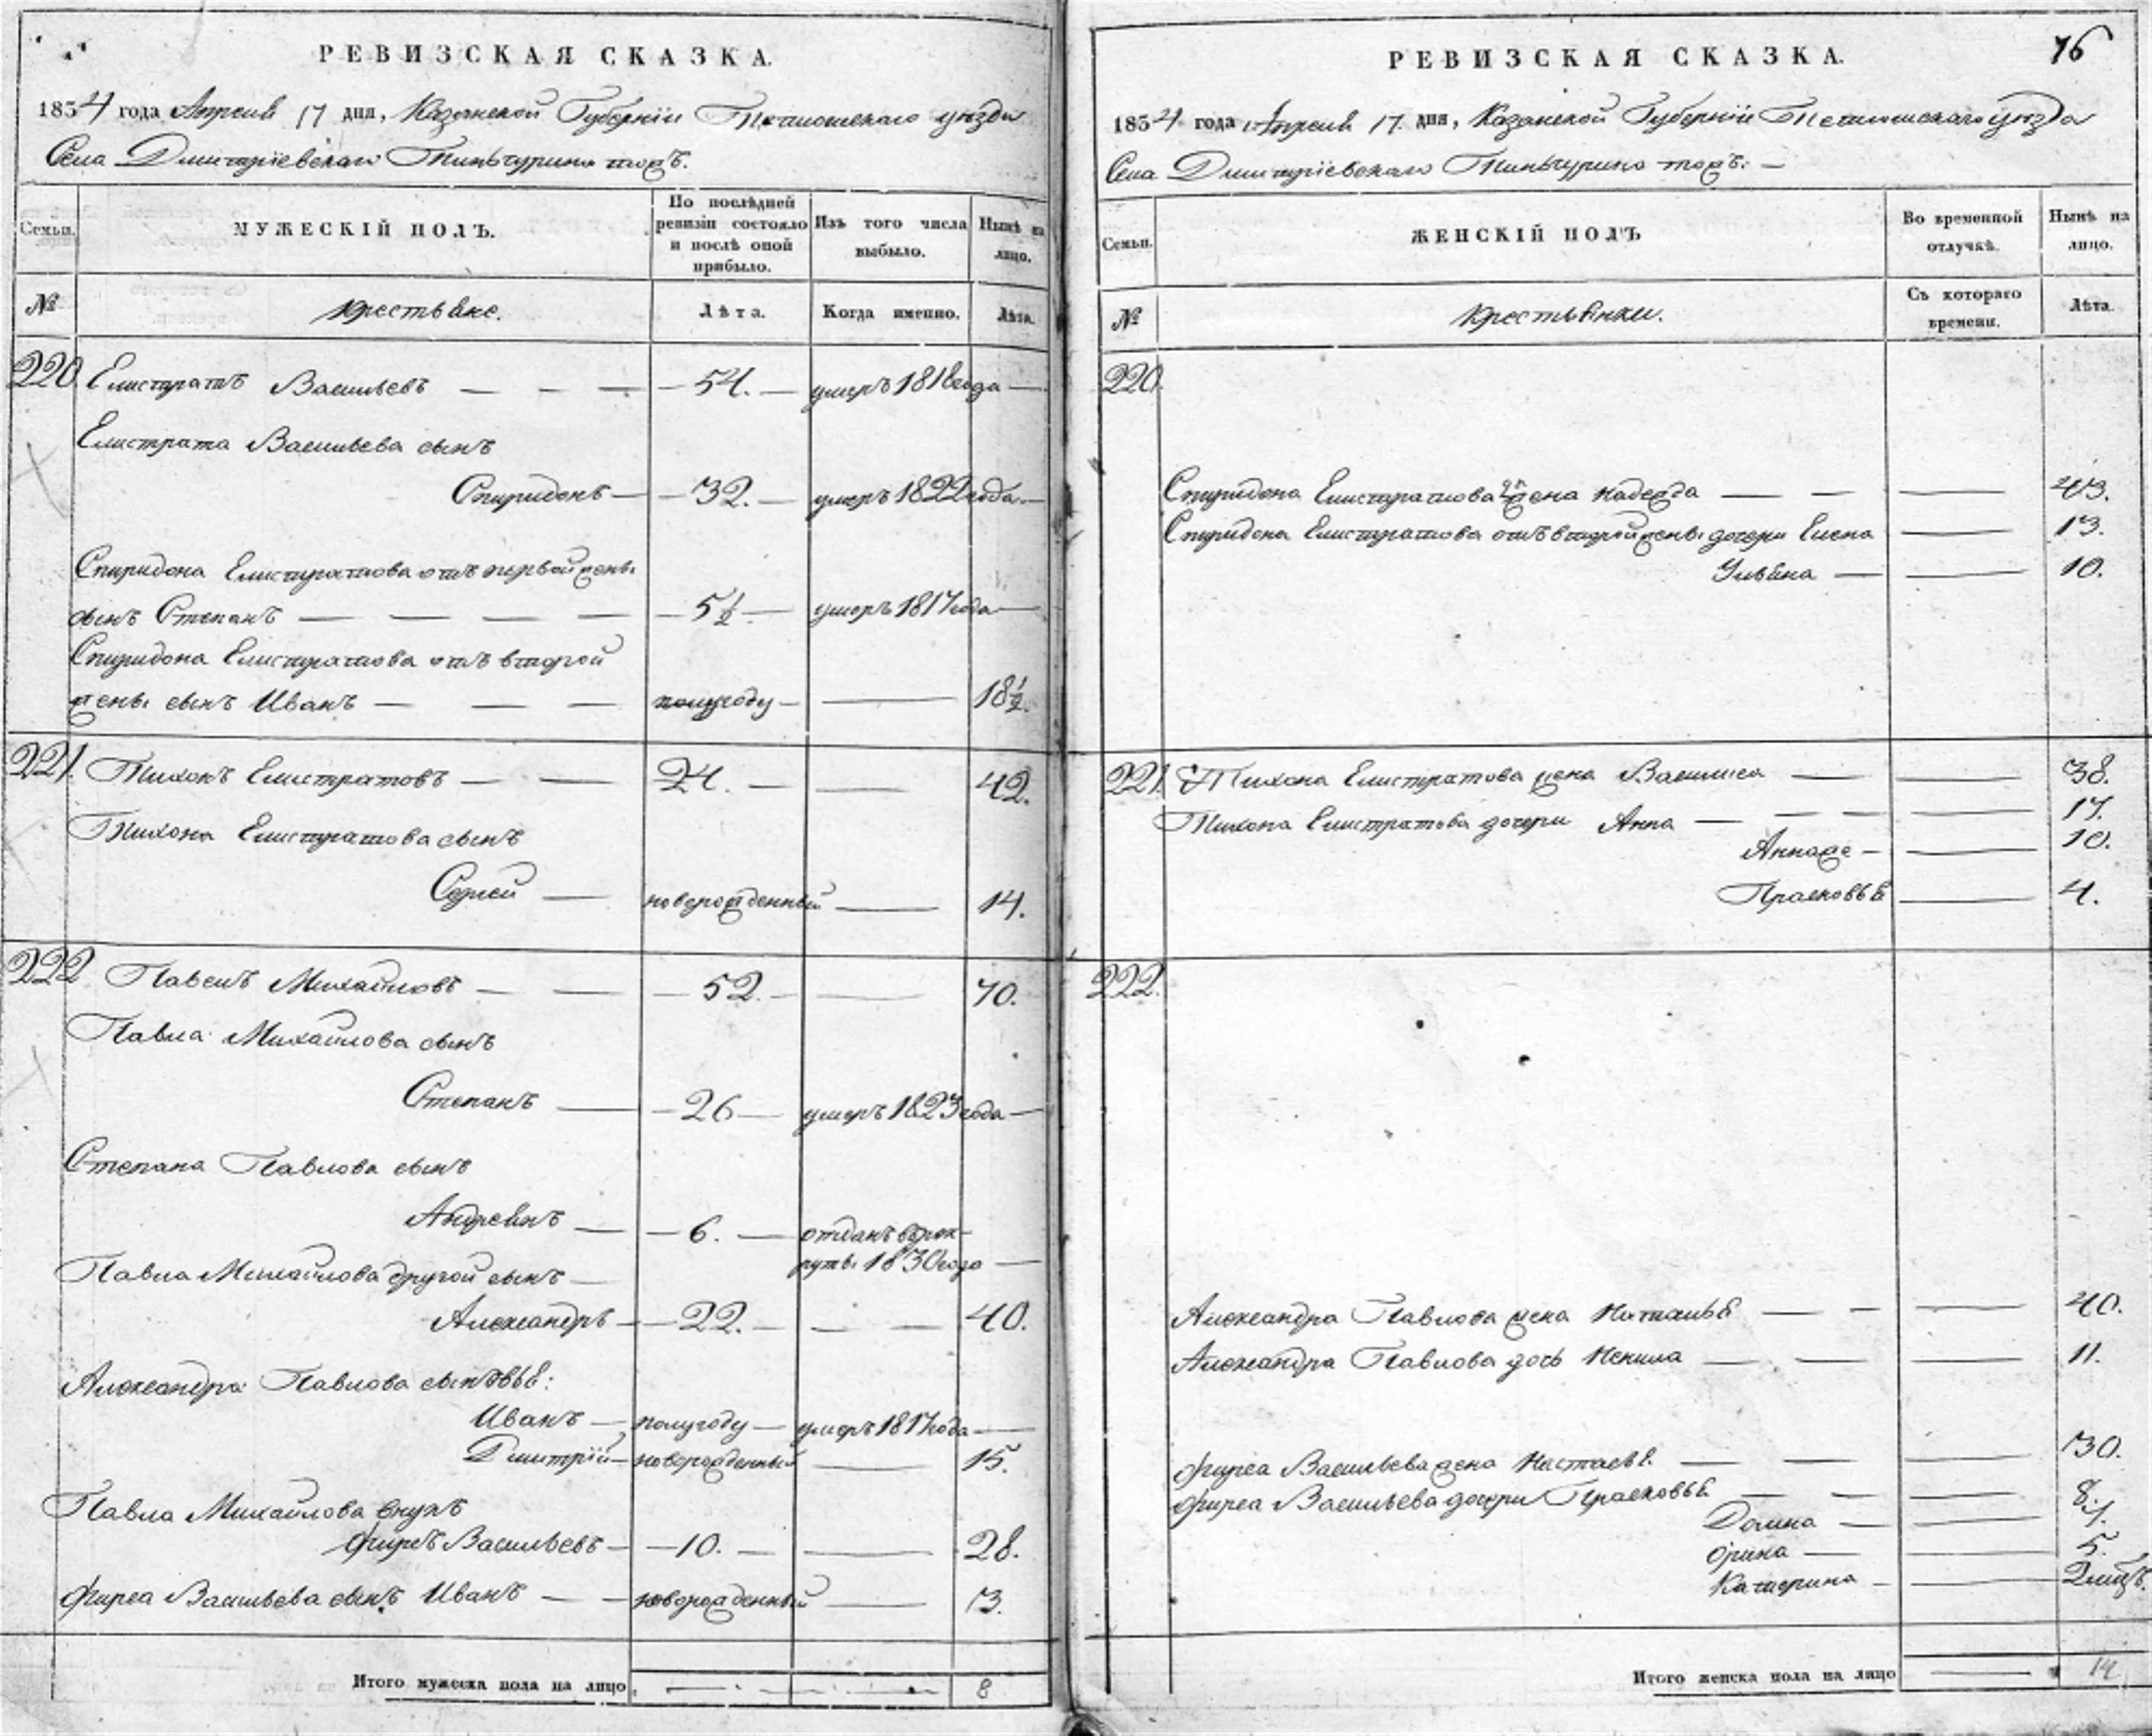 РЕВИЗСКАЯ СКАЗКА.
1834 года Апреля 17 дня, Казанской Губернiи Тетюшскаго уѣзда
Села Дмитрiевскаго Тиньчурино тожъ.
Семьи.
МУЖЕСКІЙ ПОЛЪ.
По послѣдней ревизiи состояло и послѣ оной прибыло.
Изъ того числа выбыло.
Нынѣ на лицо.
№
крестьяне.
Лѣта.
Когда именно.
Лѣта.
220. Елистратъ Васильевъ — 54. — умеръ 1818 года —
Елистрата Васильева сынъ
Спиридонъ — 32. — умеръ 1822 года —
Спиридона Елистратова отъ первой жены
сынъ Степанъ — 5½ — умеръ 1817 года —
Спиридона Елистратова отъ второй
жены сынъ Иванъ — полугоду — 18½.
221. Тихонъ Елистратовъ — 24. — 42.
Тихона Елистратова сынъ
Сергей — новорожденный — 14.
222 Павелъ Михайловъ — 52. — 70.
Павла Михайлова сынъ
Степанъ — 26 — умеръ 1823 года —
Степана Павлова сынъ
Андреянъ — 6. — отданъ в рек-
руты 1830 года —
Павла Михайлова другой сынъ —
Александръ — 22. — 40.
Александра Павлова сыновья:
Иванъ — полугоду — умеръ 1817 года —
Дмитрiй — новорожденный — 15.
Павла Михайлова внукъ
Фирсъ Васильевъ — 10. — 28.
Фирса Васильева сынъ Иванъ — новорожденный — 3.
Итого мужеска пола на лицо 8
76
РЕВИЗСКАЯ СКАЗКА.
1834 года Апреля 17. дня, Казанской Губернiи Тетюшскаго уѣзда
Села Дмитрiевскаго Тиньчурино тожъ. —
Семьи.
ЖЕНСКІЙ ПОЛЪ
Во временной отлучкѣ.
Нынѣ на лицо.
№
крестьянки.
Съ котораго времени.
Лѣта.
220.
Спиридона Елистратова 2я жена Надежда — 43.
Спиридона Елистратова отъ второй жены дочери Елена — 13.
Ульяна — 10.
221. Тихона Елистратова жена Василиса — 38.
Тихона Елистратова дочери Анна — 17.
Прасковья — 4.
222.
Александра Павлова жена Наталья — 40.
Александра Павлова дочь — 11.
Фирса Васильева жена Настасья — 30.
Фирса Васильева дочери Прасковья — 8.
Домна — 7.
Орина — 5.
Катерина —
Итого женска пола на лицо 14